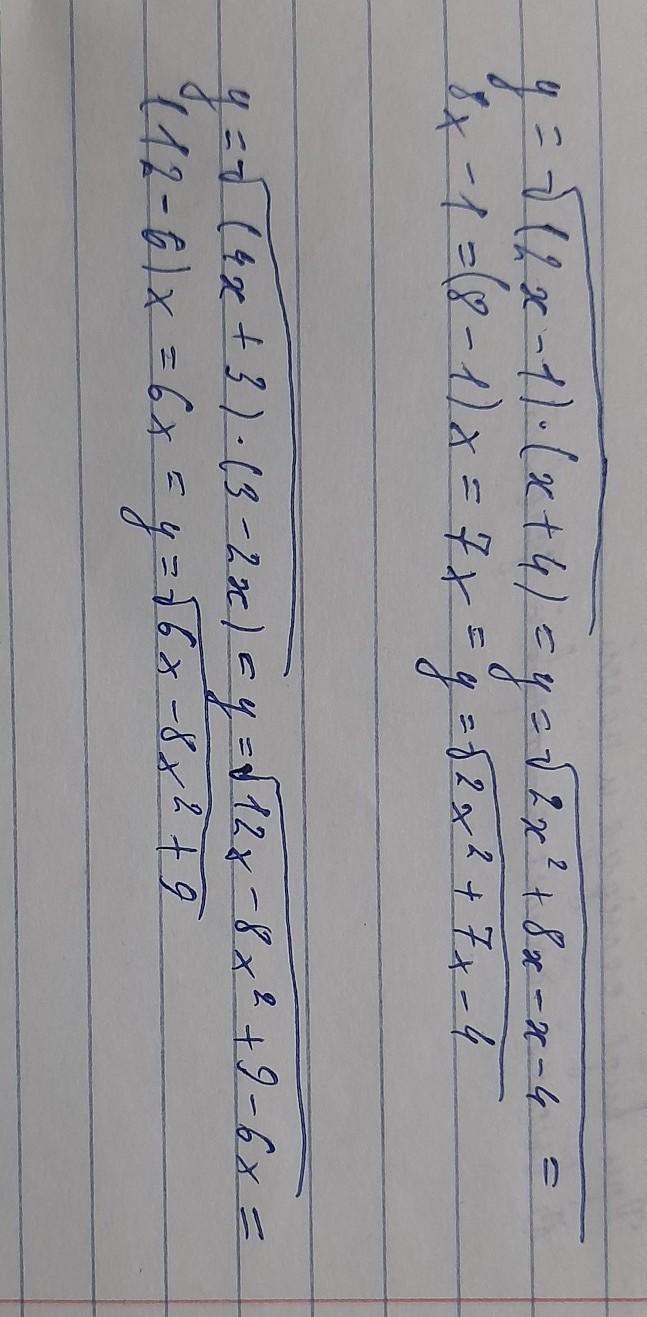 y = √(2x - 1) · (x + 4) = y = √2x² + 8x - x - 4 =
8x - 1 = (8 - 1)x = 7x = y = √2x² + 7x - 4
y = √(4x + 3) · (3 - 2x) = y = √12x - 8x² + 9 - 6x =
(12 - 6)x = 6x = y = √6x - 8x² + 9